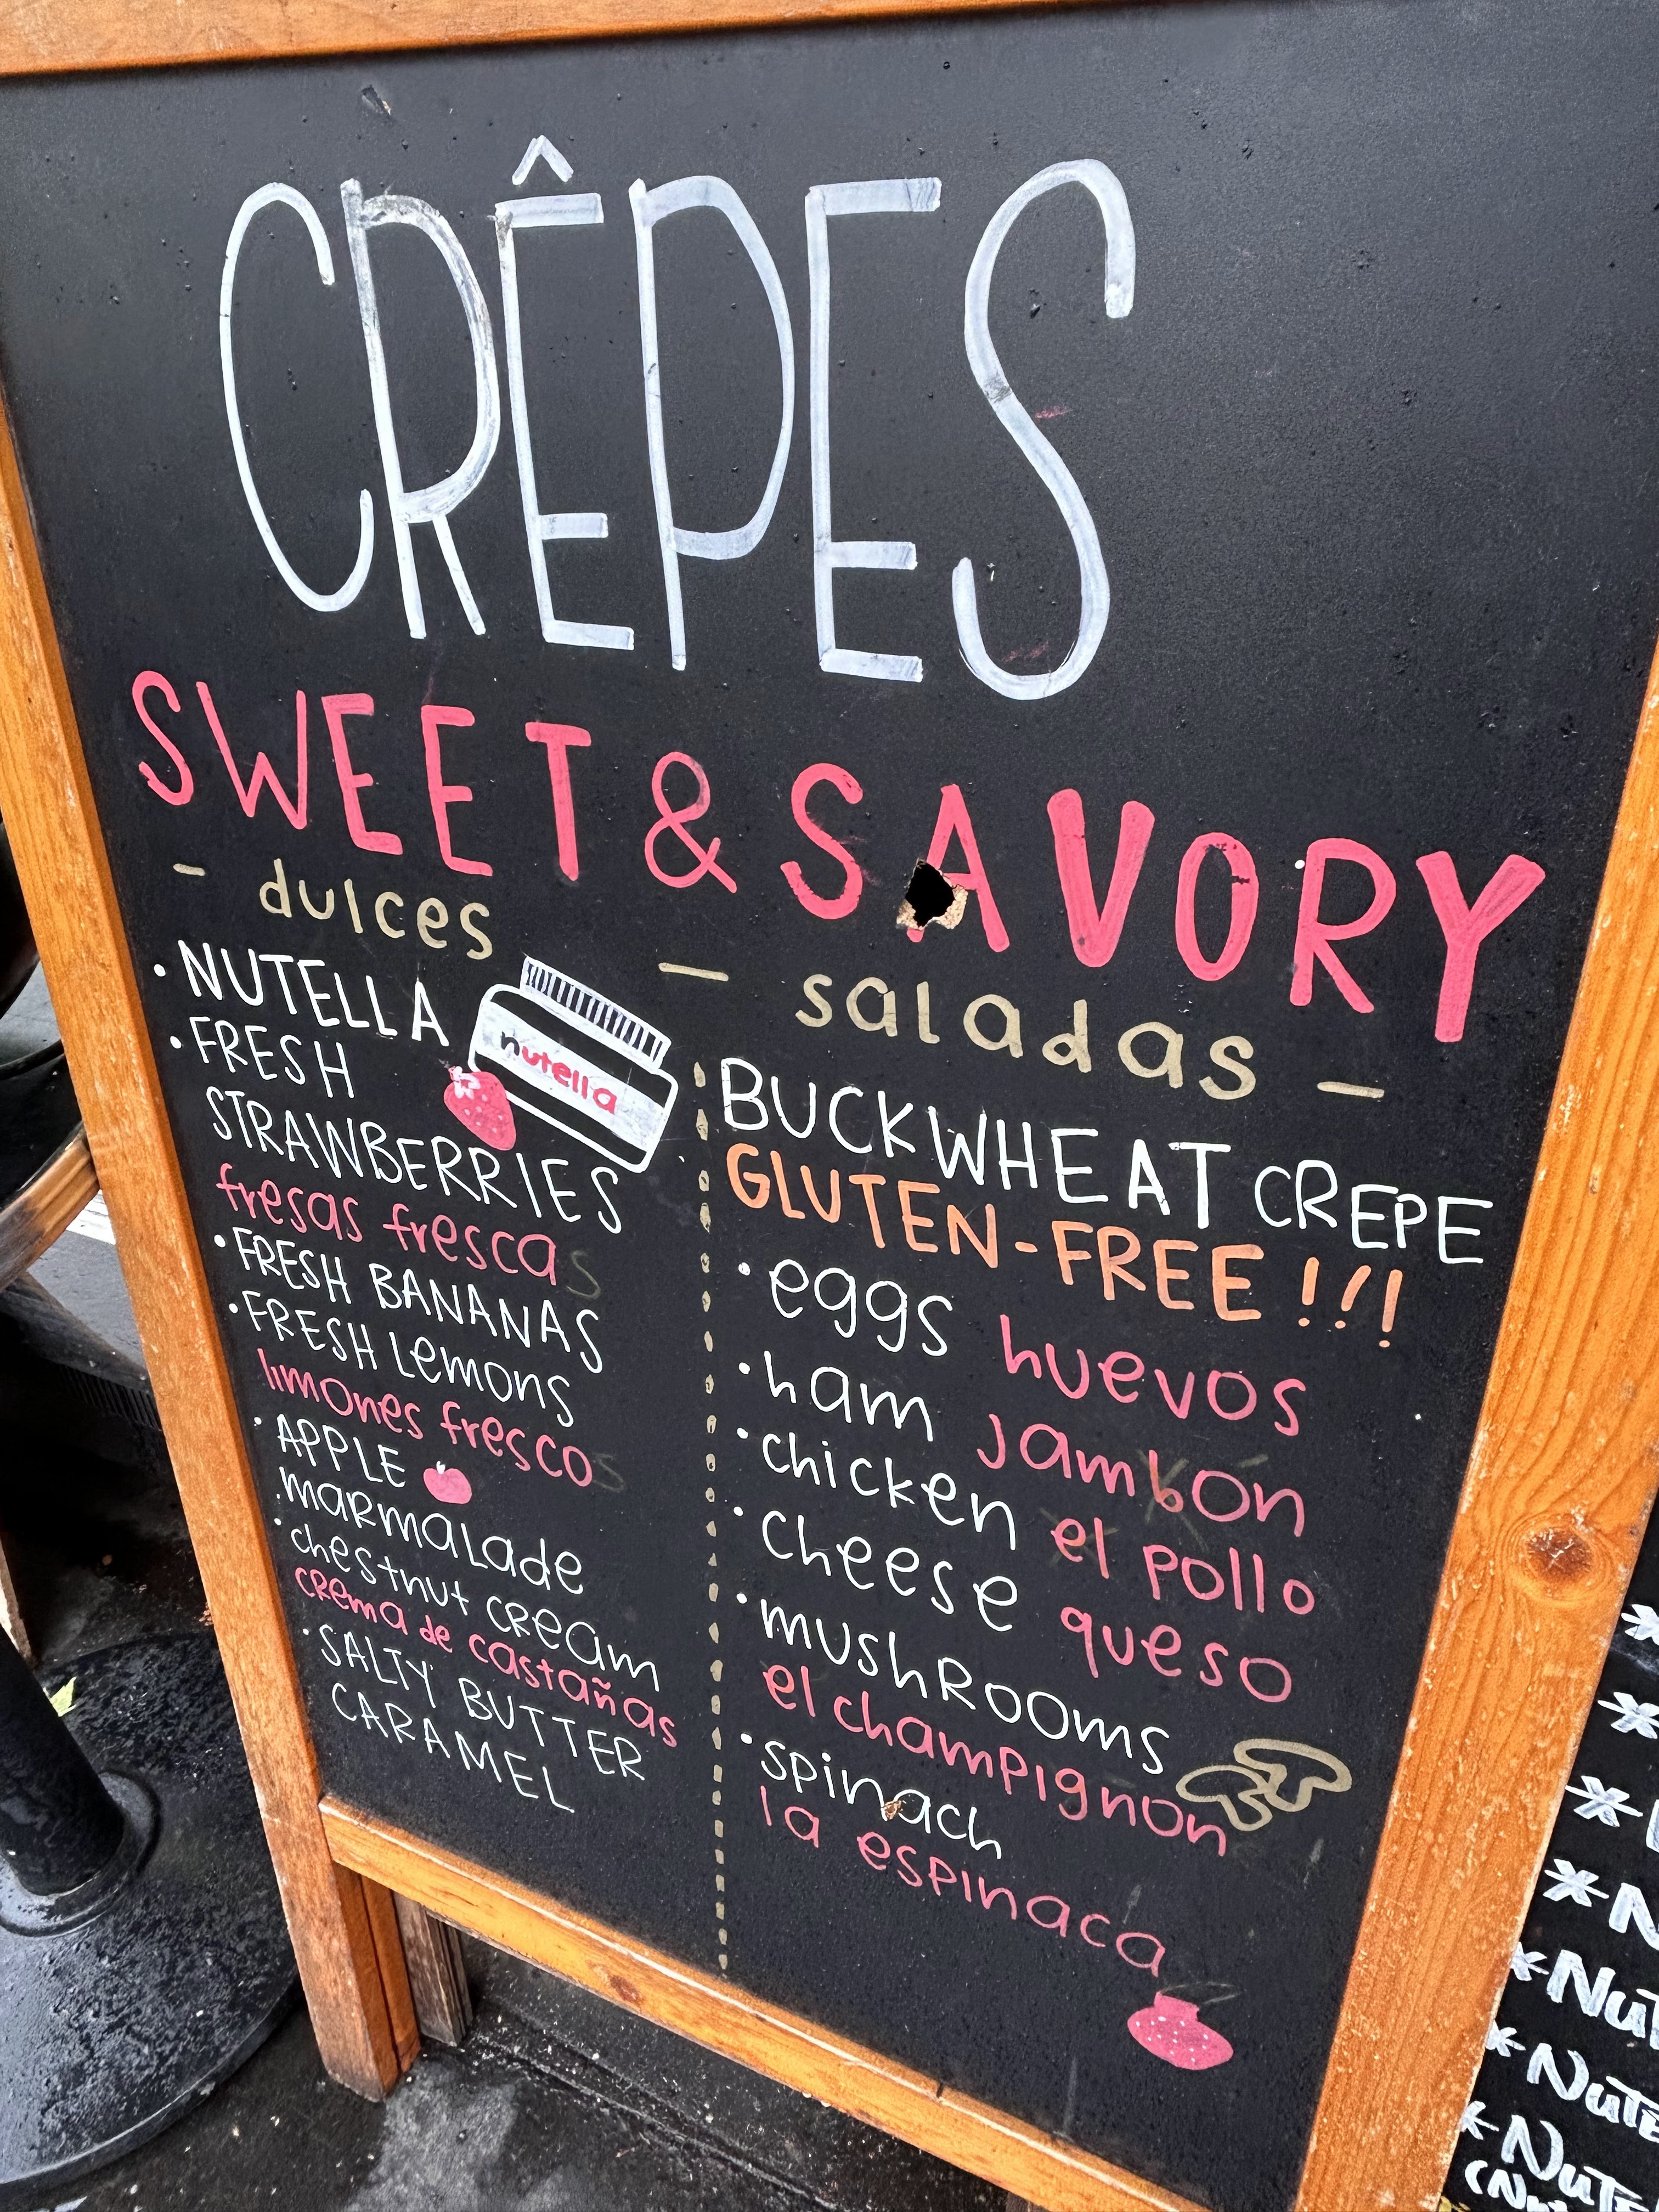 CRÊPES
SWEET & SAVORY
- dulces
- saladas -
• NUTELLA
nutella
• FRESH
STRAWBERRIES
fresas frescas
• FRESH BANANAS
• FRESH Lemons
limones frescos
• APPLE
marmalade
• chestnut cream
crema de castañas
• SALTY BUTTER
CARAMEL
BUCKWHEAT CREPE
GLUTEN-FREE !!!
• eggs huevos
• ham jambon
• chicken el pollo
• cheese queso
• mushrooms
el champignon
• spinach
la espinaca